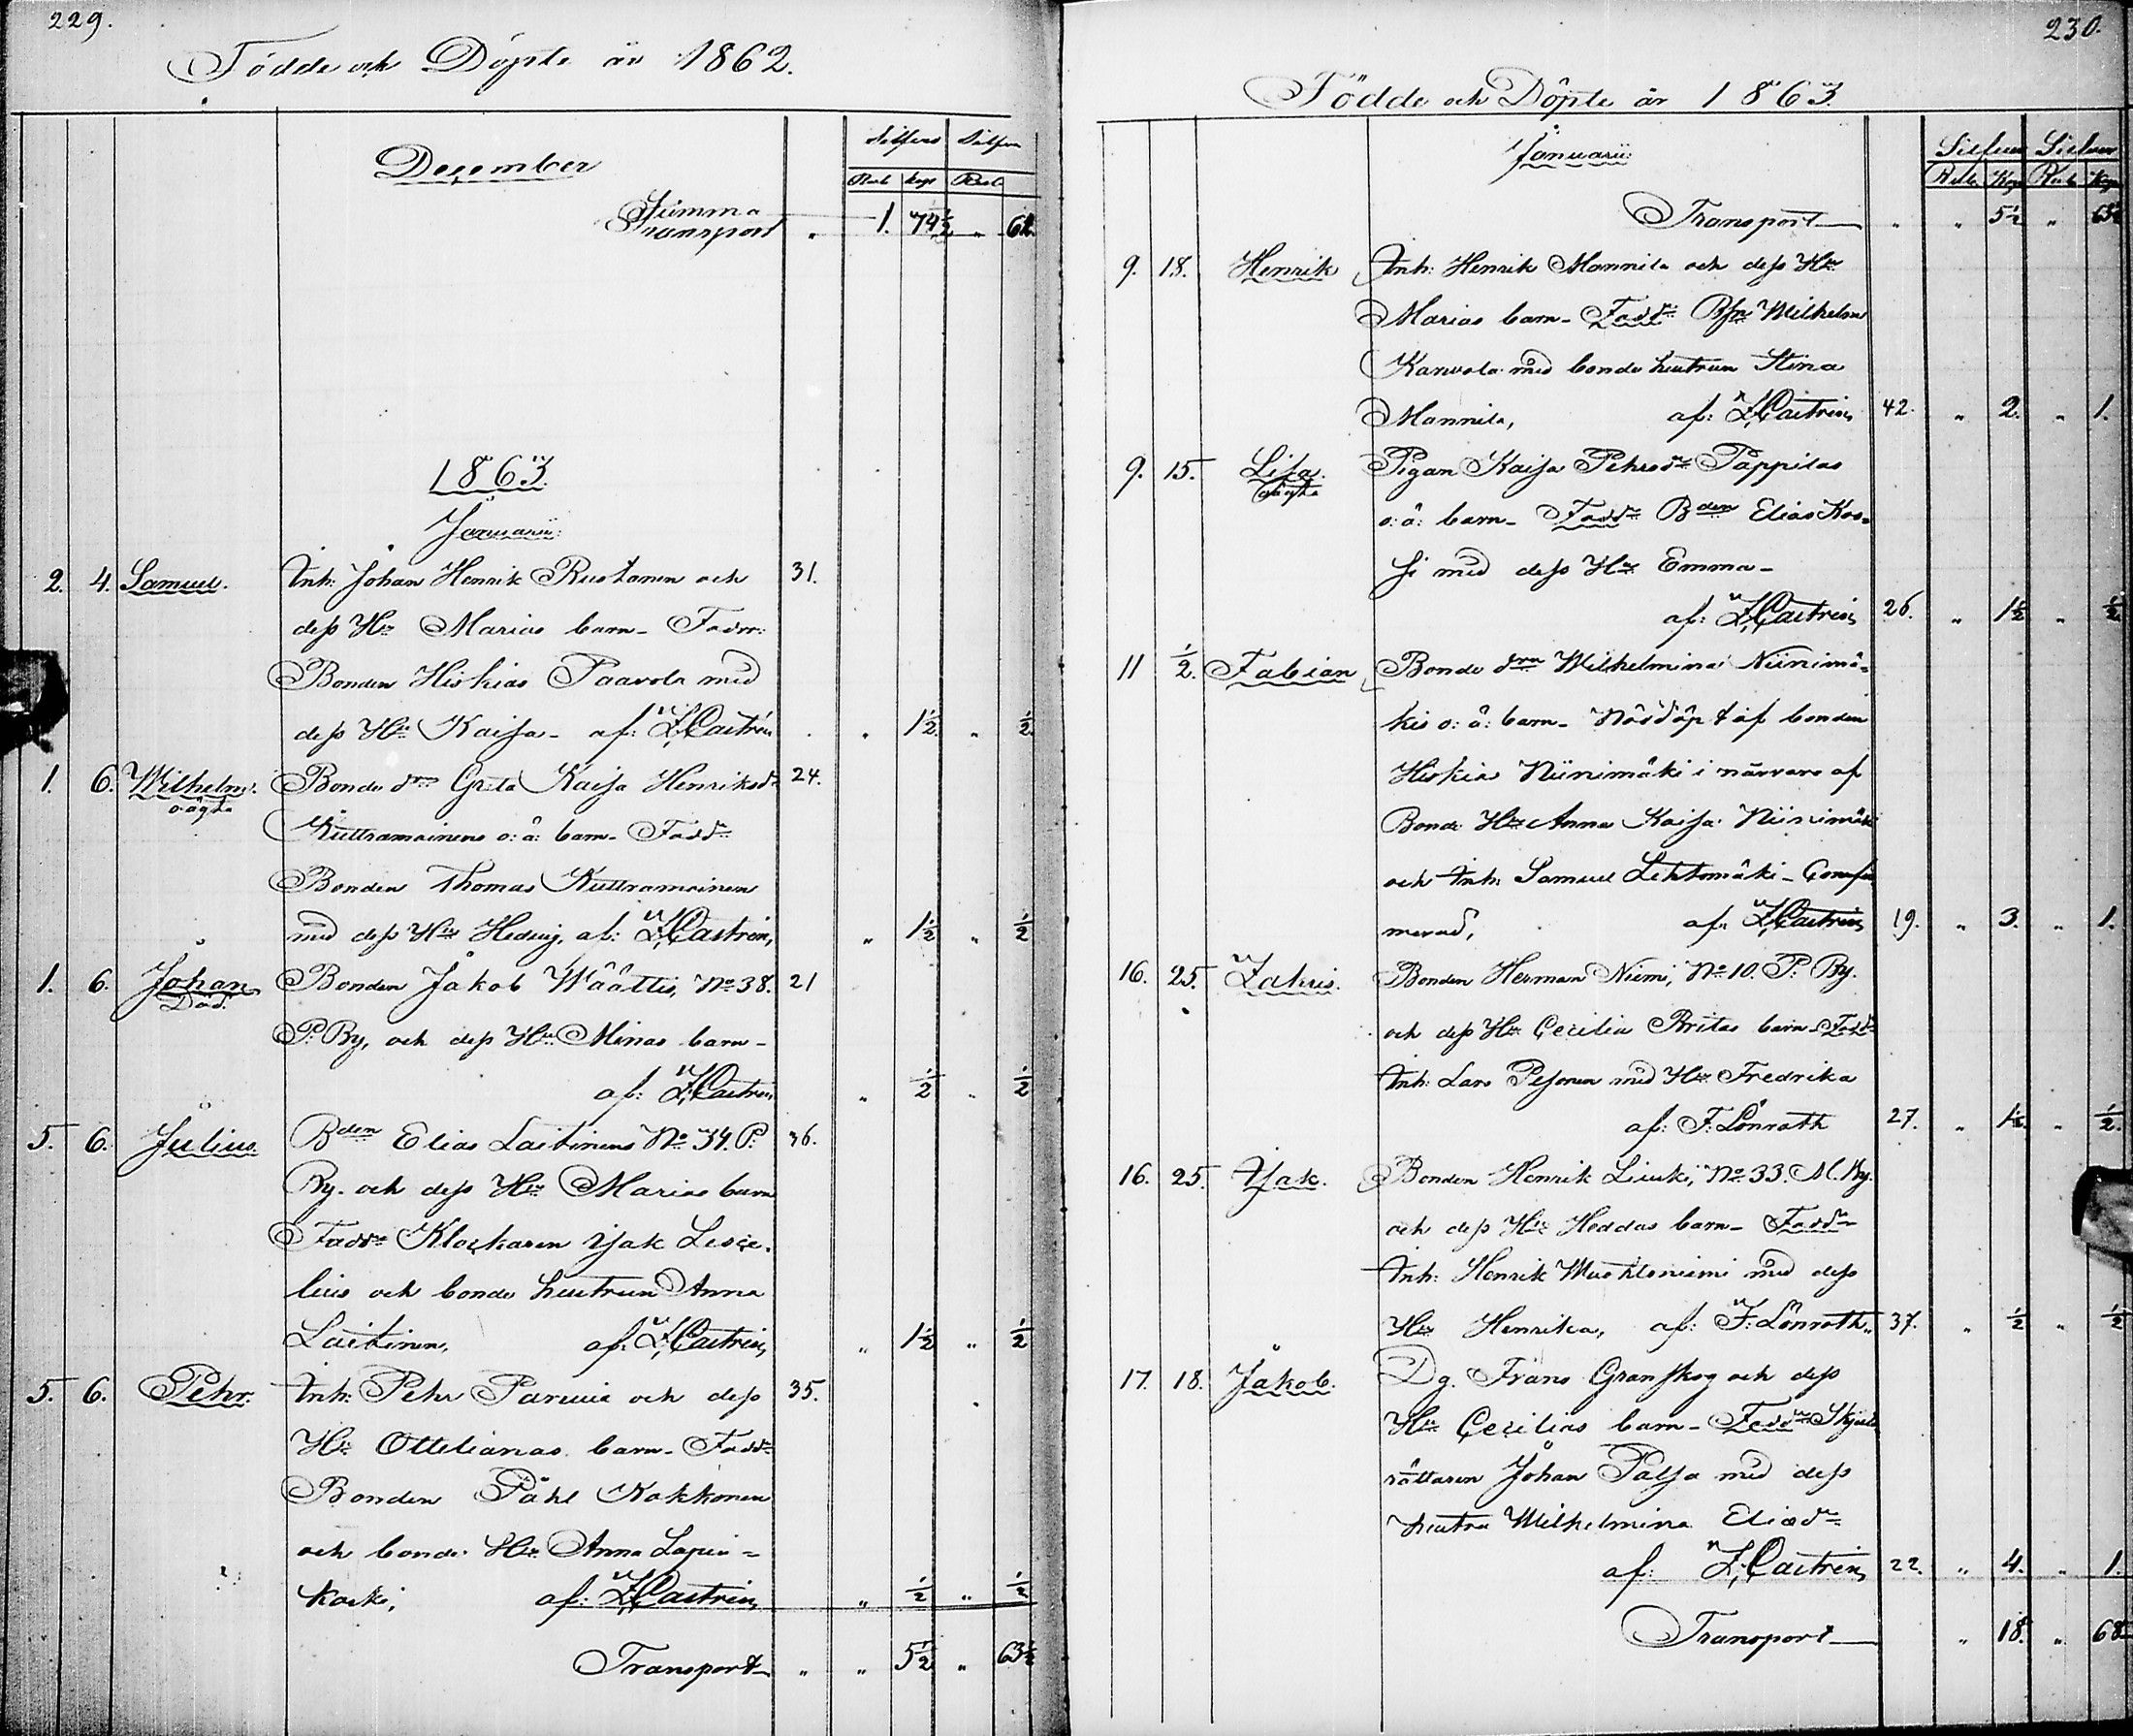 229.
Födde och Döpte år 1862.
December
Silfver Silfver
Rub kop Rub
Summa
Transport " 1. 74½ " 62.
1863.
Januarii:
2. 4. Samuel. Inh: Johan Henrik Ruotanen och 31.
dess Hu Marias barn- Faddr:
Bonden Hiskias Paavola med
dess Hu Kaisa- af: Z,Castrén " 1½ " ½
1. 6. Wilhelm. Bonde dren Greta Kaisa Henriksdr 24.
oägta
Kuttramoinens o: ä: barn- Faddr
Bonden Thomas Kuttramoinen
med dess Hu Hedvig, af: Z,Castrén, " 1½ " ½
1. 6. Johan Bonden Jakob Wäättis, No 38. 21
Död.
P. By, och dess Hu Minas barn-
af: Z,Castrén " ½ " ½
5. 6. Julius. Bden Elias Laitinens No 34. P: 36.
By. och dess Hu Marias barn
Faddr Klockaren Isak Lesce-
lius och bonde hustrun Anna
Laitinen, af: Z,Castrén, " 1½ " ½
5. 6. Pehr. Inh: Pehr Parvia och dess 35.
Hu Ottilianas barn- Faddr
Bonden Påhl Kokkonen
och bonde Hu Anna Lapin-
koski, af: Z,Castrén, " ½ " ½
Transport- " " 5½ " 63½
230.
Födde och Döpte år 1863.
Januarii:
Silfver Silfver
Rub. Kop Rub Kop
Transport- " " 5½ " 63½
9. 18. Henrik Inh: Henrik Mannila och dess Hu
Marias barn- Faddr Bsn Wilhelm
Karvola med bonde hustrun Stina
Mannila, af: Z,Castrén, 42. " 2. " 1.
9. 15. Lisa. Pigan Kaisa Pehrsdr Pappilas
oägta
o: ä: barn- Faddr Bden Elias Kos-
si med dess Hu Emma-
af: Z,Castrén, 26. " 1½ " ½
11 ½. Fabian Bonde dren Wilhelmina Niinimä-
kis o: ä: barn- Nöddöpt af bonden
Hiskias Niinimäki i närvaro af
Bonde Hu Anna Kaisa Niinimäki
och Inh: Samuel Lehtomäki- Comfir
merad, af: Z,Castrén, 19. " 3. " 1.
16. 25. Zakris. Bonden Herman Niemi, No 10. P: By.
och dess Hu Cecilia Britas barn- Faddr
Inh: Lars Pesonen med Hu Fredrika
af: F: Lönroth 27. " 1½ " ½.
16. 25. Isak. Bonden Henrik Liuski, No 33. M. By.
och dess Hu Heddas barn- Faddr
Inh: Henrik Mustloniemi med dess
Hu Henrika, af: F: Lönroth., 37. " ½ " ½
17. 18. Jakob. Dg. Frans Granskog och dess
Hu Cecilias barn- Faddr Skjuts
rättaren Johan Palsa med dess
hustru Wilhelmina Eliædr
af: Z,Castrén, 22. " 4. " 1.
Transport- " 18. " 68